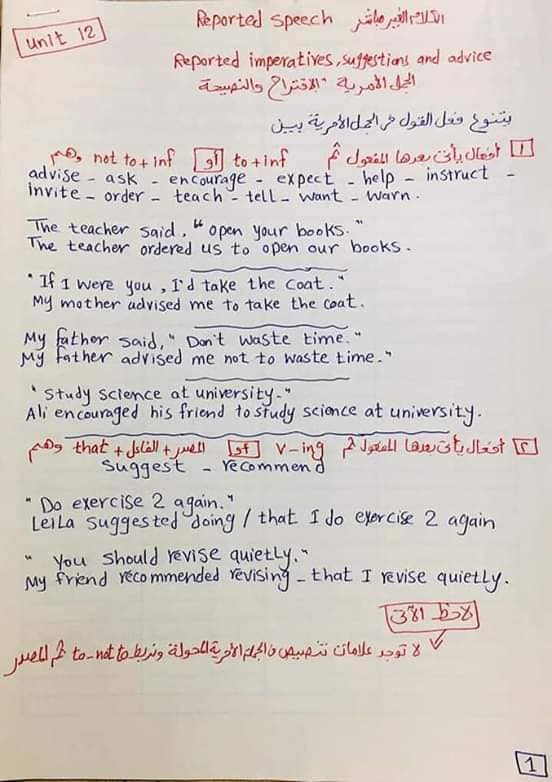 Unit 12
Reported speech الكلام الغير مباشر
Reported imperatives, suggestions and advice
الجمل الأمرية "الاقتراح والنصيحة
يتنوع فعل القول في الجمل الأمرية بين
١ أفعال يأتى بعدها المفعول ثم to + inf أو not to + inf وهم
advise - ask - encourage - expect - help - instruct -
invite - order - teach - tell - want - warn.
The teacher said, "open your books."
The teacher ordered us to open our books.
"If I were you, I'd take the coat."
My mother advised me to take the coat.
My father said, "Don't waste time."
My father advised me not to waste time."
"Study science at university."
Ali encouraged his friend to study science at university.
٢ أفعال يأتى بعدها المفعول ثم v-ing أو المصدر + الفاعل + that وهم
Suggest - recommend
"Do exercise 2 again."
Leila suggested doing / that I do exercise 2 again
"You should revise quietly."
My friend recommended revising - that I revise quietly.
لاحظ الآتى
لا توجد علامات تنصيص في الجمل الأمرية المحولة ونربط to - not to ثم المصدر
1